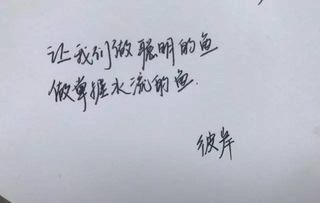 让我们做聪明的鱼
做掌握水流的鱼.
彼岸